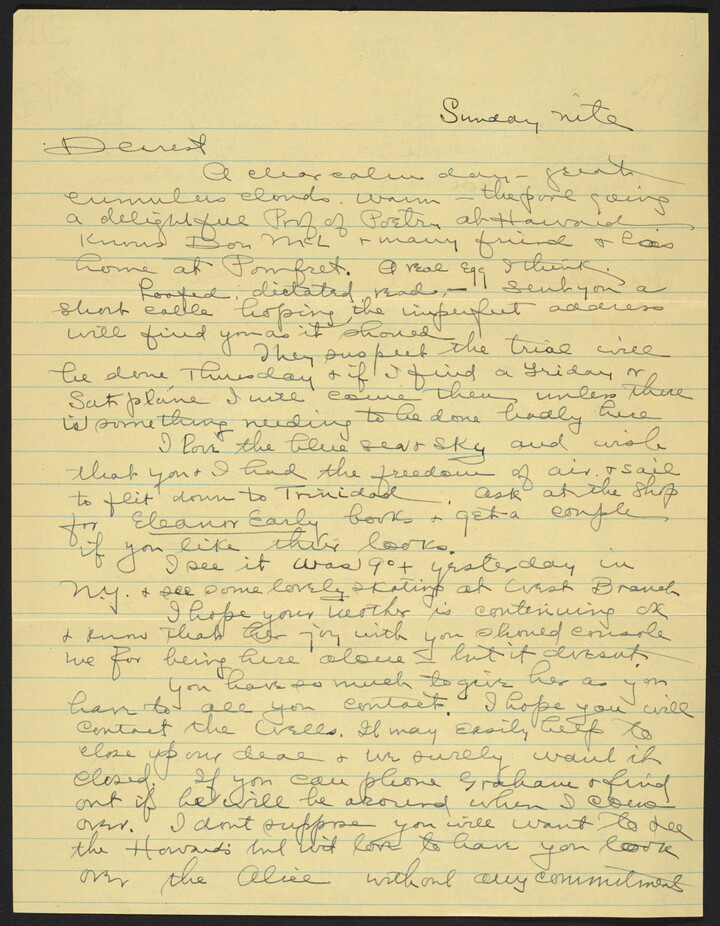 Sunday nite
Dearest
A clear calm day – great
cumulus clouds. Warm – going
a delightful Prof of Poetry at Harvard
Knows Don McL + many friend + has
home at Pomfret. A real egg I think.
Loafed, dictated, read, – Sent you a
short cable hoping the imperfect address
will find you as it should
They suspect the trial will
be done Thursday + if I find a Friday or
Sat plane I will come then unless there
is something needing to be done badly here
I love the blue sea + sky and wish
that you + I had the freedom of air + sail
to flit down to Trinidad. Ask at the shop
for Eleanor Early books + get a couple
if you like their looks.
I see it was 9°+ yesterday in
N.Y. + see some lovely skating at West Branch
I hope your mother is continuing ok
+ know that her joy with you should console
me for being here alone – but it doesnt.
You have so much to give her as you
have to all you contact. I hope you will
contact the Wells. It may easily help to
close up our deal + we surely want it
closed. If you can phone Graham + find
out if he will be around when I come
over. I dont suppose you will want to see
the Howards but wd love to have you look
over the Alice without any commitment